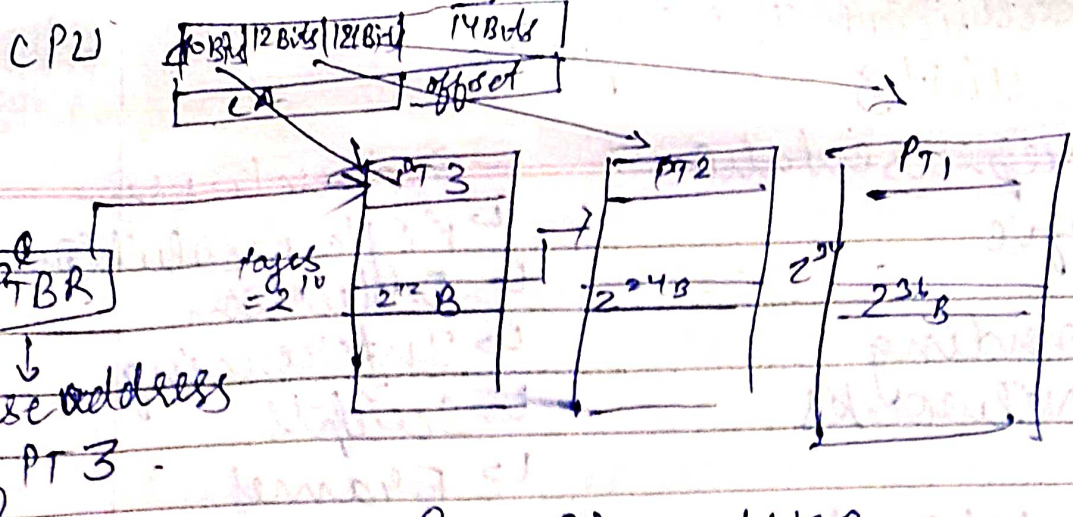 CPU
10 Bits 12 Bits 12 Bits 14 Bits
offset
PT 3 PT2 PT1
PTBR
Pages
= 2^10 2^12 B 2^24 B 2^34 2^36 B
se address
PT 3.